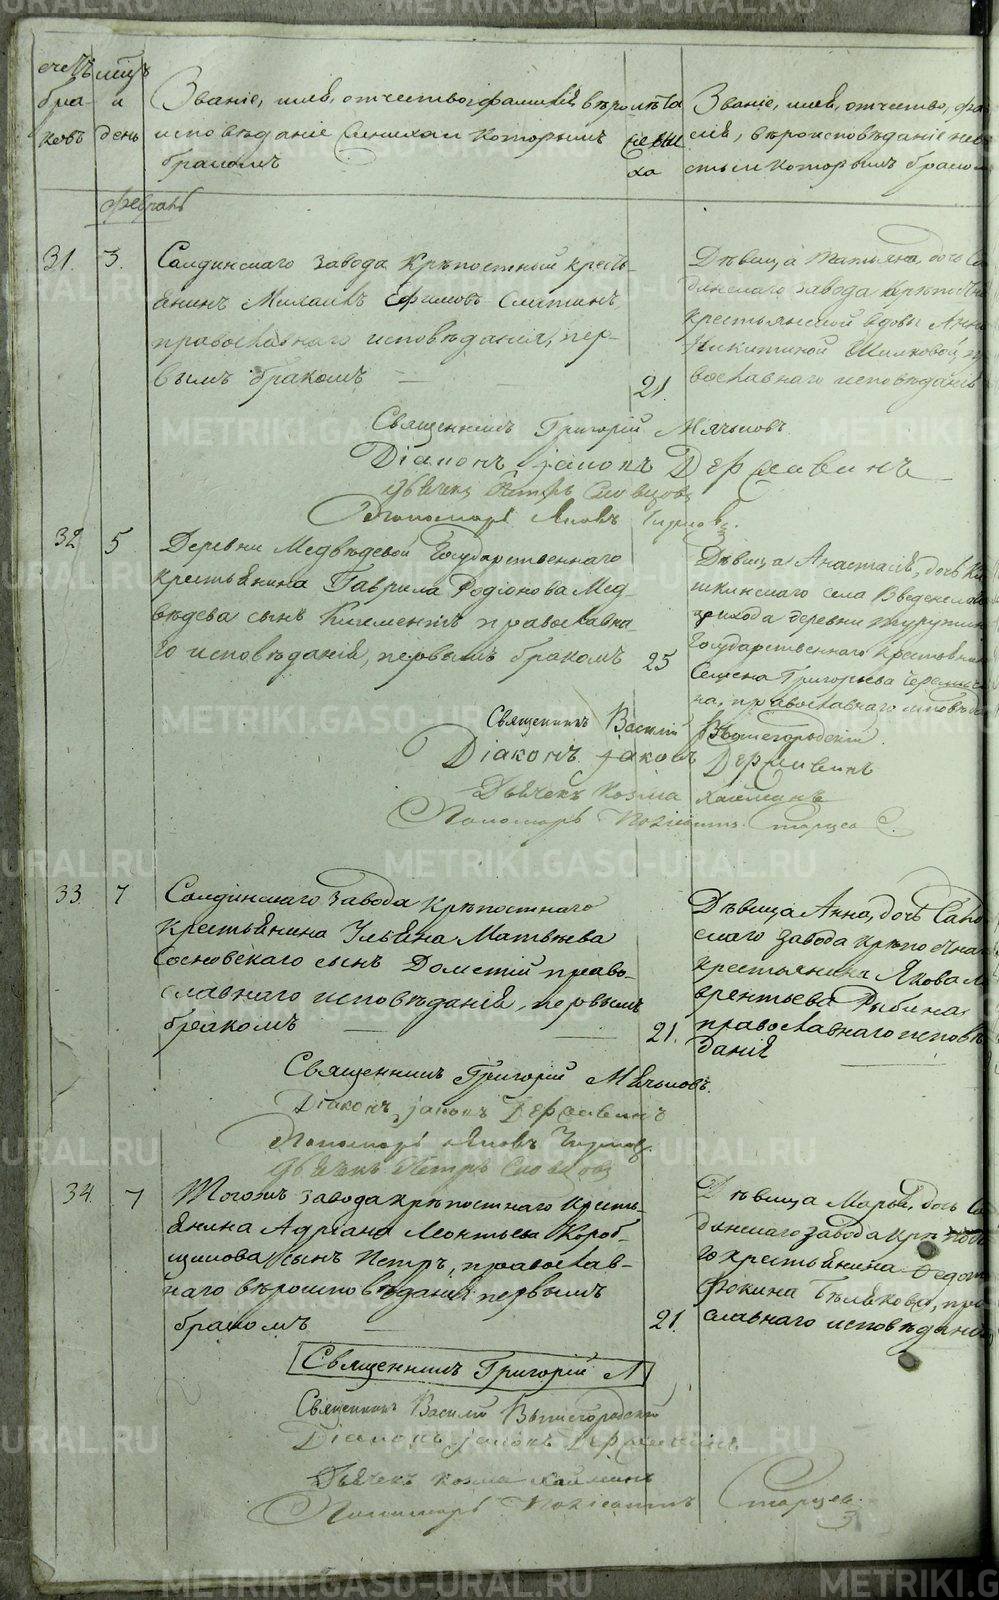 счетъ
бра-
ковъ
мѣцъ
и
день
Званіе, имя, отчество и фамилія, вѣро
исповѣданіе Жениха и которымъ
бракомъ
лѣта
жени
ха
Званіе, имя, отчество, фа
лія, вѣроисповѣданіе неве
сты и которымъ браком
Февраль
31. 3.
Салдинскаго завода крѣпостный кресть-
янинъ Михаилъ Ефимовъ
православнаго исповѣданія, пер-
вымъ бракомъ
21.
Дѣвица Татьяна, дочь Са
динскаго завода крѣпостно
крестьянской вдовы Анны
Никитиной пра
вославнаго исповѣданія
Священникъ Григорій Мячковъ
Діаконъ Іаковъ Державинъ
Дьячекъ Петръ Словцовъ
Пономарь Яковъ
32 5
Деревни Медвѣдевой Государственнаго
крестьянина Гаврила Родіонова Мед-
вѣдева сынъ Климентій православна-
го исповѣданія, первымъ бракомъ
25
Дѣвица Анастасія, дочь
села Введенскаго
прихода деревни
Государственнаго крестьянина
Семена Григорьева
на, православнаго исповѣда
Священникъ Василій Вышегородскій
Діаконъ Іаковъ Державинъ
Дьячекъ Козма
Пономарь Старцев
33. 7
Салдинскаго завода крѣпостнаго
крестьянина Ульяна Матвѣева
Сосновскаго сынъ Дометій право-
славнаго исповѣданія, первымъ
бракомъ
21.
Дѣвица Анна, дочь Салдин
скаго завода крѣпостнаго
крестьянина Якова Ла
врентьева Рыбина
православнаго исповѣ
данія
Священникъ Григорій Мячковъ.
Діаконъ Іаковъ Державинъ
Пономарь Яковъ
Дьячекъ Петръ Словцовъ
34. 7
Тогожъ завода крѣпостнаго кресть-
янина Адріана Леонтьева Короб-
щикова сынъ Петръ, православ-
наго вѣроисповѣданія первымъ
бракомъ
21.
Дѣвица Марья, дочь Са
динскаго завода крѣпостна
го крестьянина Федота
Фокина Бѣлякова, пра
славнаго исповѣданія
Священникъ Григорій М
Священникъ Василій Вышегородскій
Діаконъ Іаковъ Державинъ
Дьячекъ Козма
Пономарь Старцев
METRIKI.GASO-URAL.RU